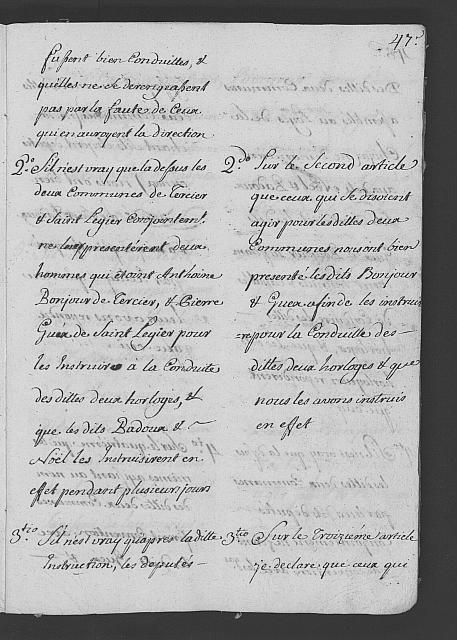 47.
fussent bien Conduittes, &
qu'elles ne se derengeassent
pas par la faute de Ceux
qui en auroyent la direction
2.do S'il n'est vray que la dessus les
deux Communes de Tercier
& Saint Legier Conjointemt.
ne leur presentérent deux
hommes qui étoint Anthoine
Bonjour de Tercier, & Pierre
Guex de Saint Legier pour
les Instruire à la Conduite
des dittes deux horloges, &
que les dits Badoux &
Noël les Instruisirent en
effet pendant plusieurs jours
3.tio S'il n'est vray qu'apres la ditte
Instruction, les deputés
2.do Sur le Second article
que ceux qui se disoient
agir pour les dittes deux
Communes nous ont bien
presenté les dits Bonjour
& Guex afin de les instrui
=re pour la Conduitte des
dittes deux horloges & que
nous les avons instruis
en effet
3.tio Sur le Troizième article
je declare que ceux qui